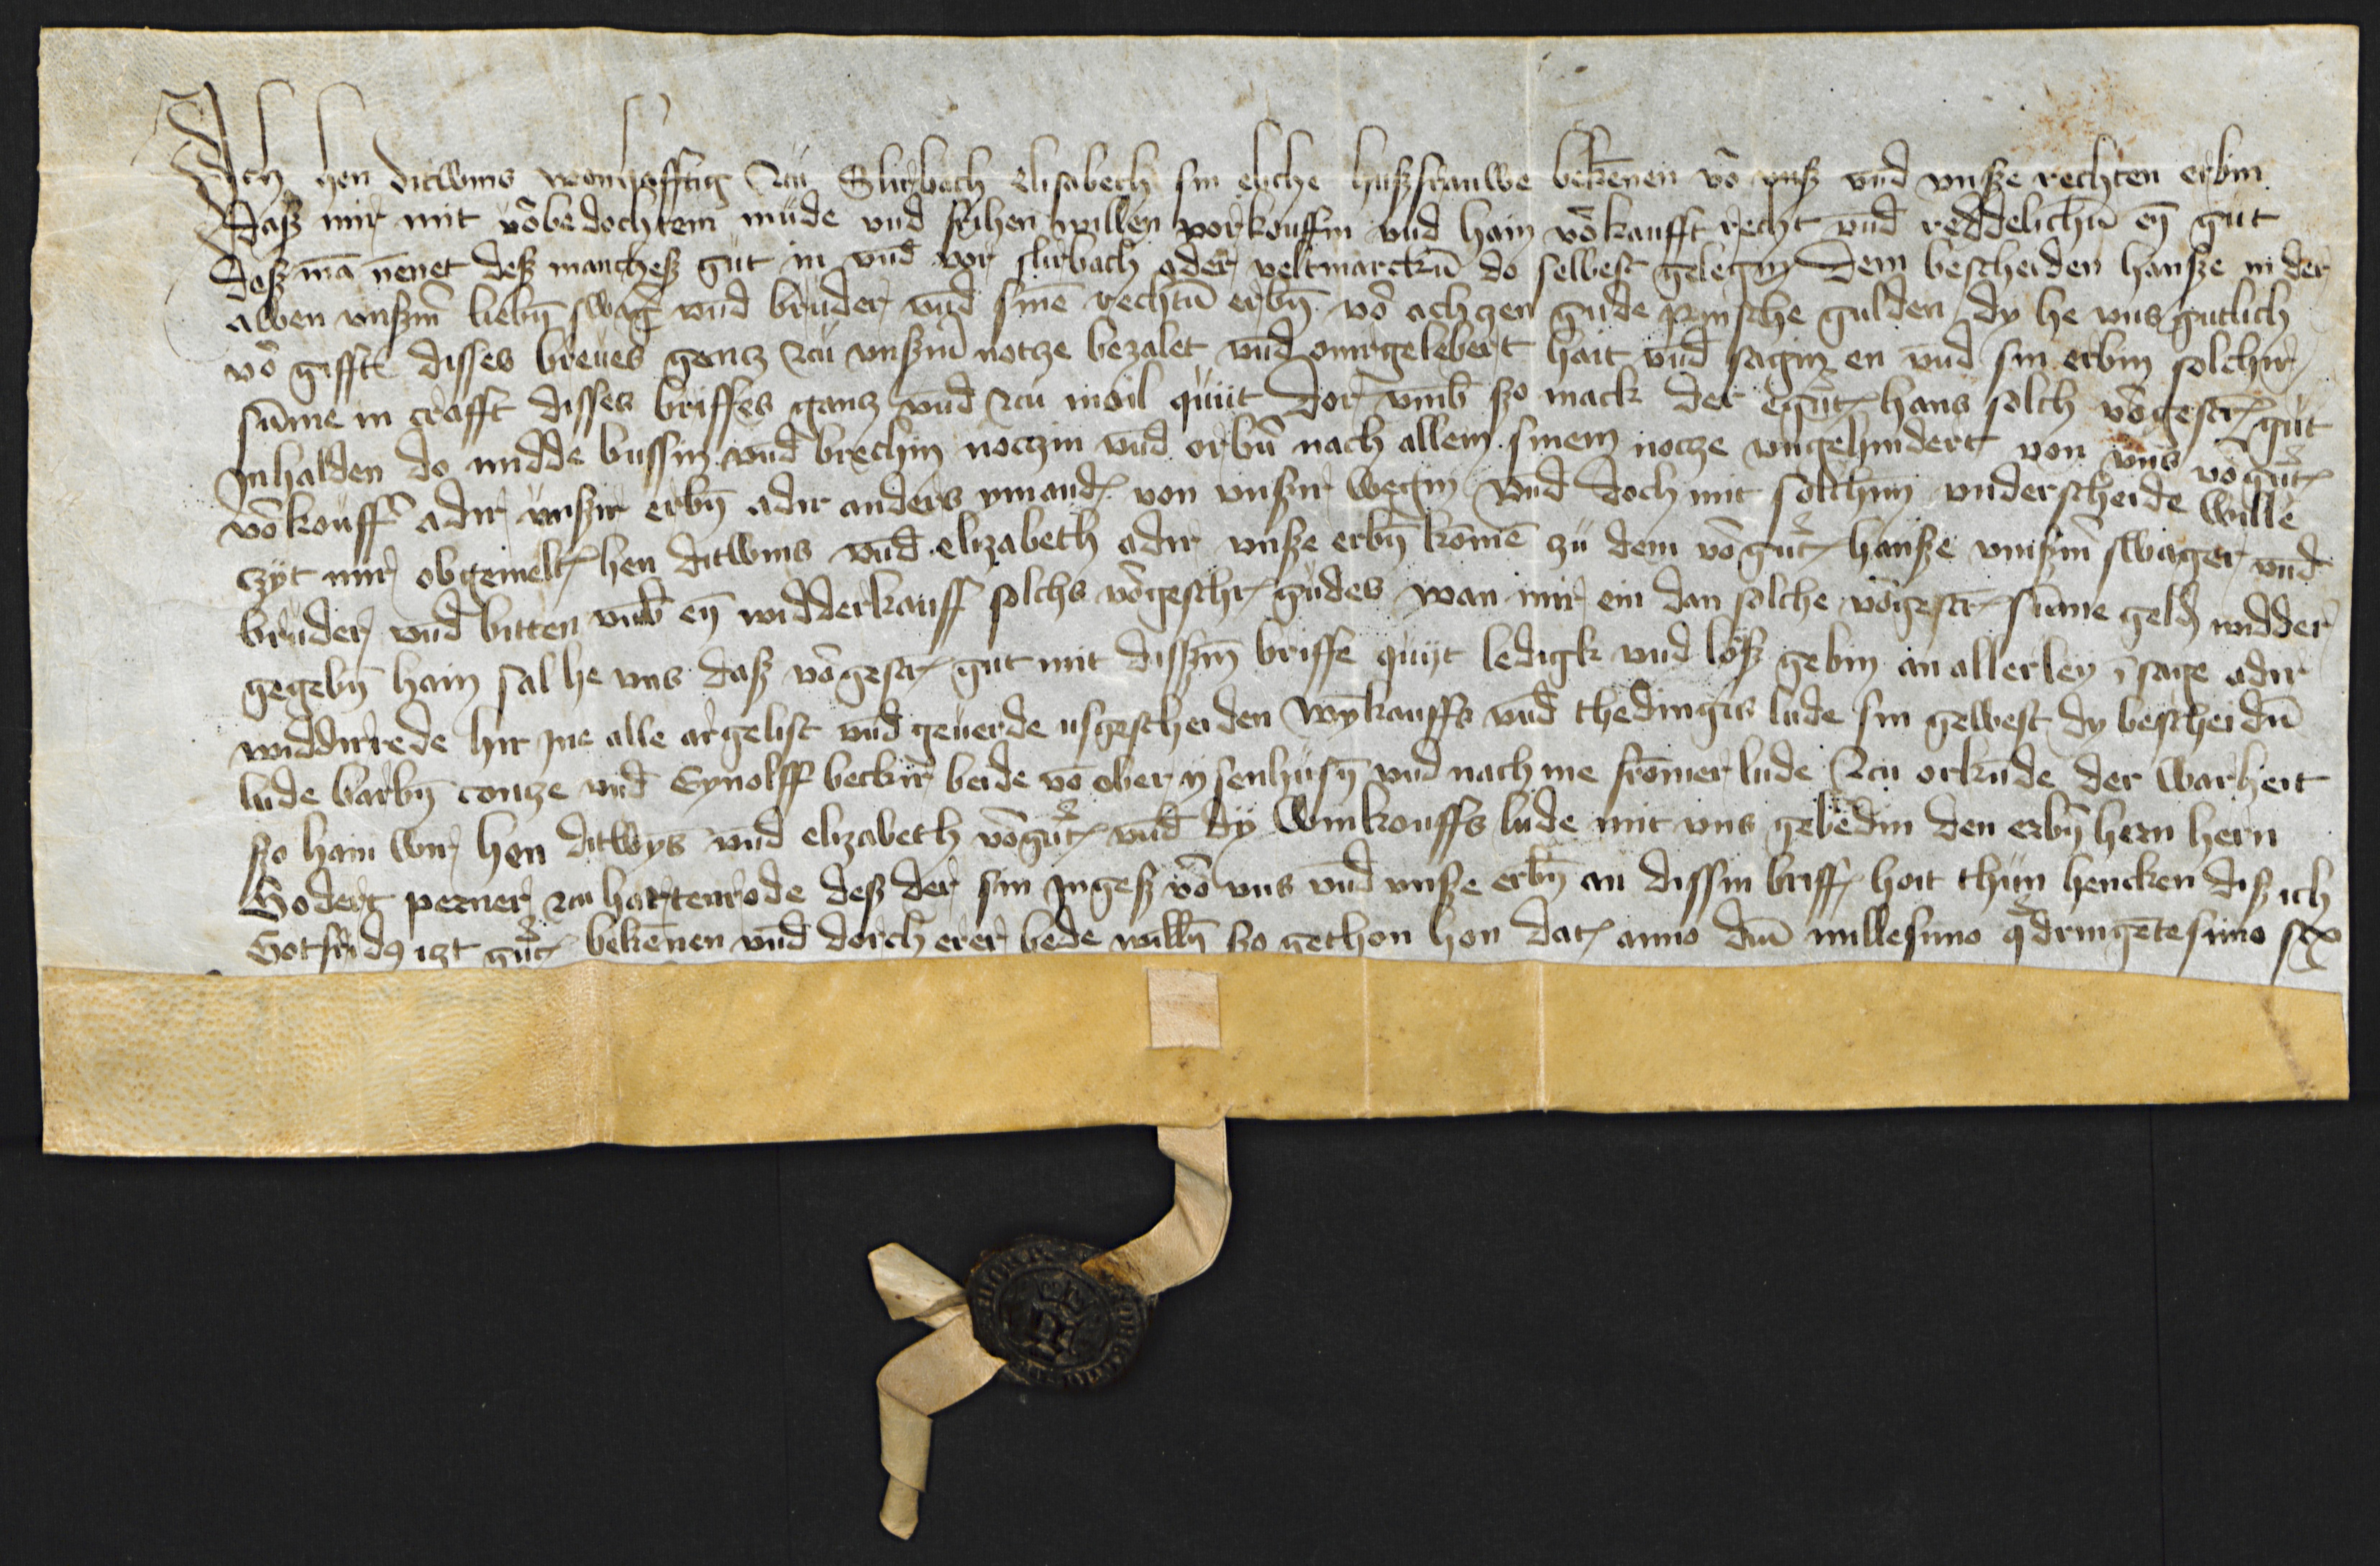 Ich hen ditwins wonhafftig zcu Slirbach elisabeth sin eliche hußfrauwe bekēnen vō vnß vnd vnße rechten erbin
daß mir mit vōbedochtem mude vnd frihen willen vorkouffin vnd hain vōkaufft recht vnd reddelichū eȳ gut
daß mā nēnet deß mancheß gut in vnd vor slirbach ader veltmarckū do selbest gelegin dem bescheiden hanße in der
awen vnßm̄ liebȳ swaḡ vnd bruder vnd sinē rechtū erbȳ vō achczen gude rynsche gulden dy he vns gutlich
vō gifft disses breues gencz zcu vnßm̄ notze bezalet vnd obirgelebert hait vnd sagin en vnd sin erbin solchir
sūme in crafft disses briffes gancz vnd zcu moil quiit dor vmb so mack der egnt hans solch vōgescr gut
Inhalden do midde bussin vnd brechin noczin vnd orbū nach allem sinem notze vngehindert von vns vōgnt
vōkouffʼ adir vnßir erbȳ adir anders ymand von vnßir wegin vnd doch mit solchin vnderscheide willē
czyt mir obgemelt hen ditwins vnd elizabeth adir vnße erbȳ komē zu dem vōgnt hanße vnßm̄ swager vnd
bruder vnd bitten vmb eȳ widderkauff solchs vōgeschr gudes wan mir ein dan solche vōgescr sūme geld widder
gegebȳ hain sal he vns daß vōgescr gut mit dissem̄ briffe quyt ledigk vnd lōß gebin an allerley īsage adir
widdirrede hir jne alle argelist vnd geuerde usgescheiden wȳkauffs vnd thedingis lude sin gewest dy bescheidū
lude barbȳ contze vnd Synolff beckir beide vō ober ysenhusȳ vnd nach me frōmer lude zcu orkūde der warheit
so hain wir hen ditwȳs vnd elizabeth vōgnt vnd dy winkouffs lude mit vns gebēdin den erbȳ hern hern
Godert perner zcu hartenrode deß der sin Ingeß vō vns vnd vnße erbȳ an dissin briff hoit thun hencken diß ich
Gotfridꝯ itzt gnt bekēnen vnd dorch erer bede willȳ so gethon hon dat anno dm̄ millesimo qdringētesimo